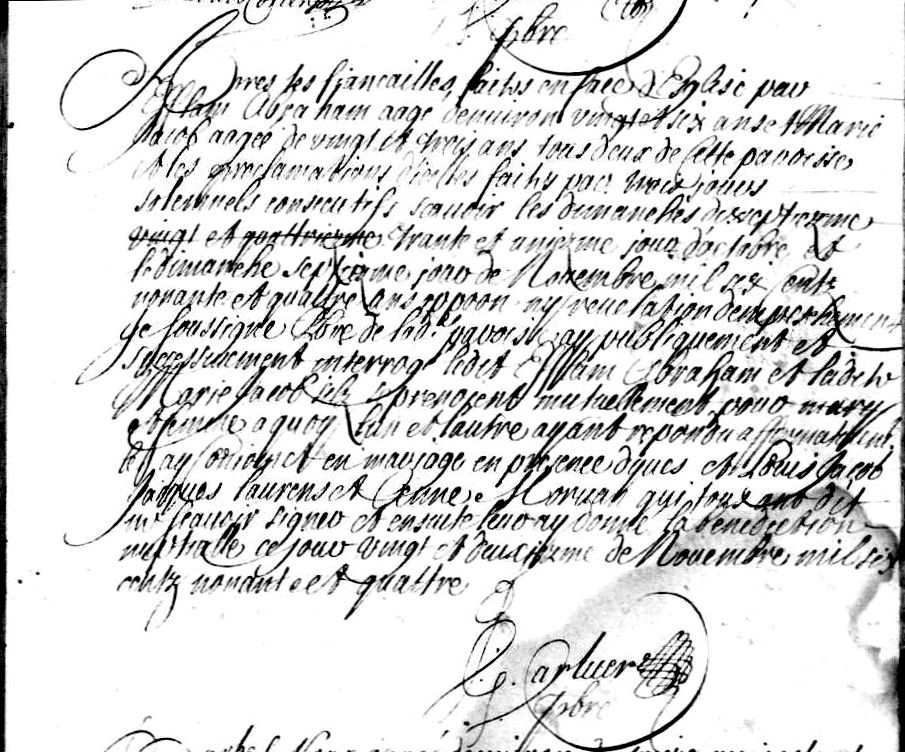 pbre
Apres les fiancailles, faites en face d'Eglise par
Efflam Abraham aagé denuiron vingt et six ans et Marie
Jacob aagée de vingt et trois ans tous deux de cette paroisse
et les proclamations d'icelles faites par trois jours
solemnels consecutifs scauoir les dimanches dixseptiezme
vingt et quattriezme trante et uniezme jour d'octobre et
le dimanche septiezme jour de Novembre mil six centz
nonante et quattre sans oppoon ny reuelation d'empeschement
je soussigné pbre de ladte paroisse ay publiquement et
successiuement interrogé ledit Efflam Abraham et ladite
Marie Jacob s'ils se prenoient mutuellement pour mary
et femme a quoy l'un et l'autre ayant repondu affirmatiuemt
les ay conioinct en mariage en presence d'yues et Louis Jacob
Jacques laurens et morvan qui tous ont dit
ne scauoir signer et ensuite leur ay donné la benediction
nuptialle ce jour vingt et deuxiezme de Novembre mil six
centz nonante et quattre
pbre